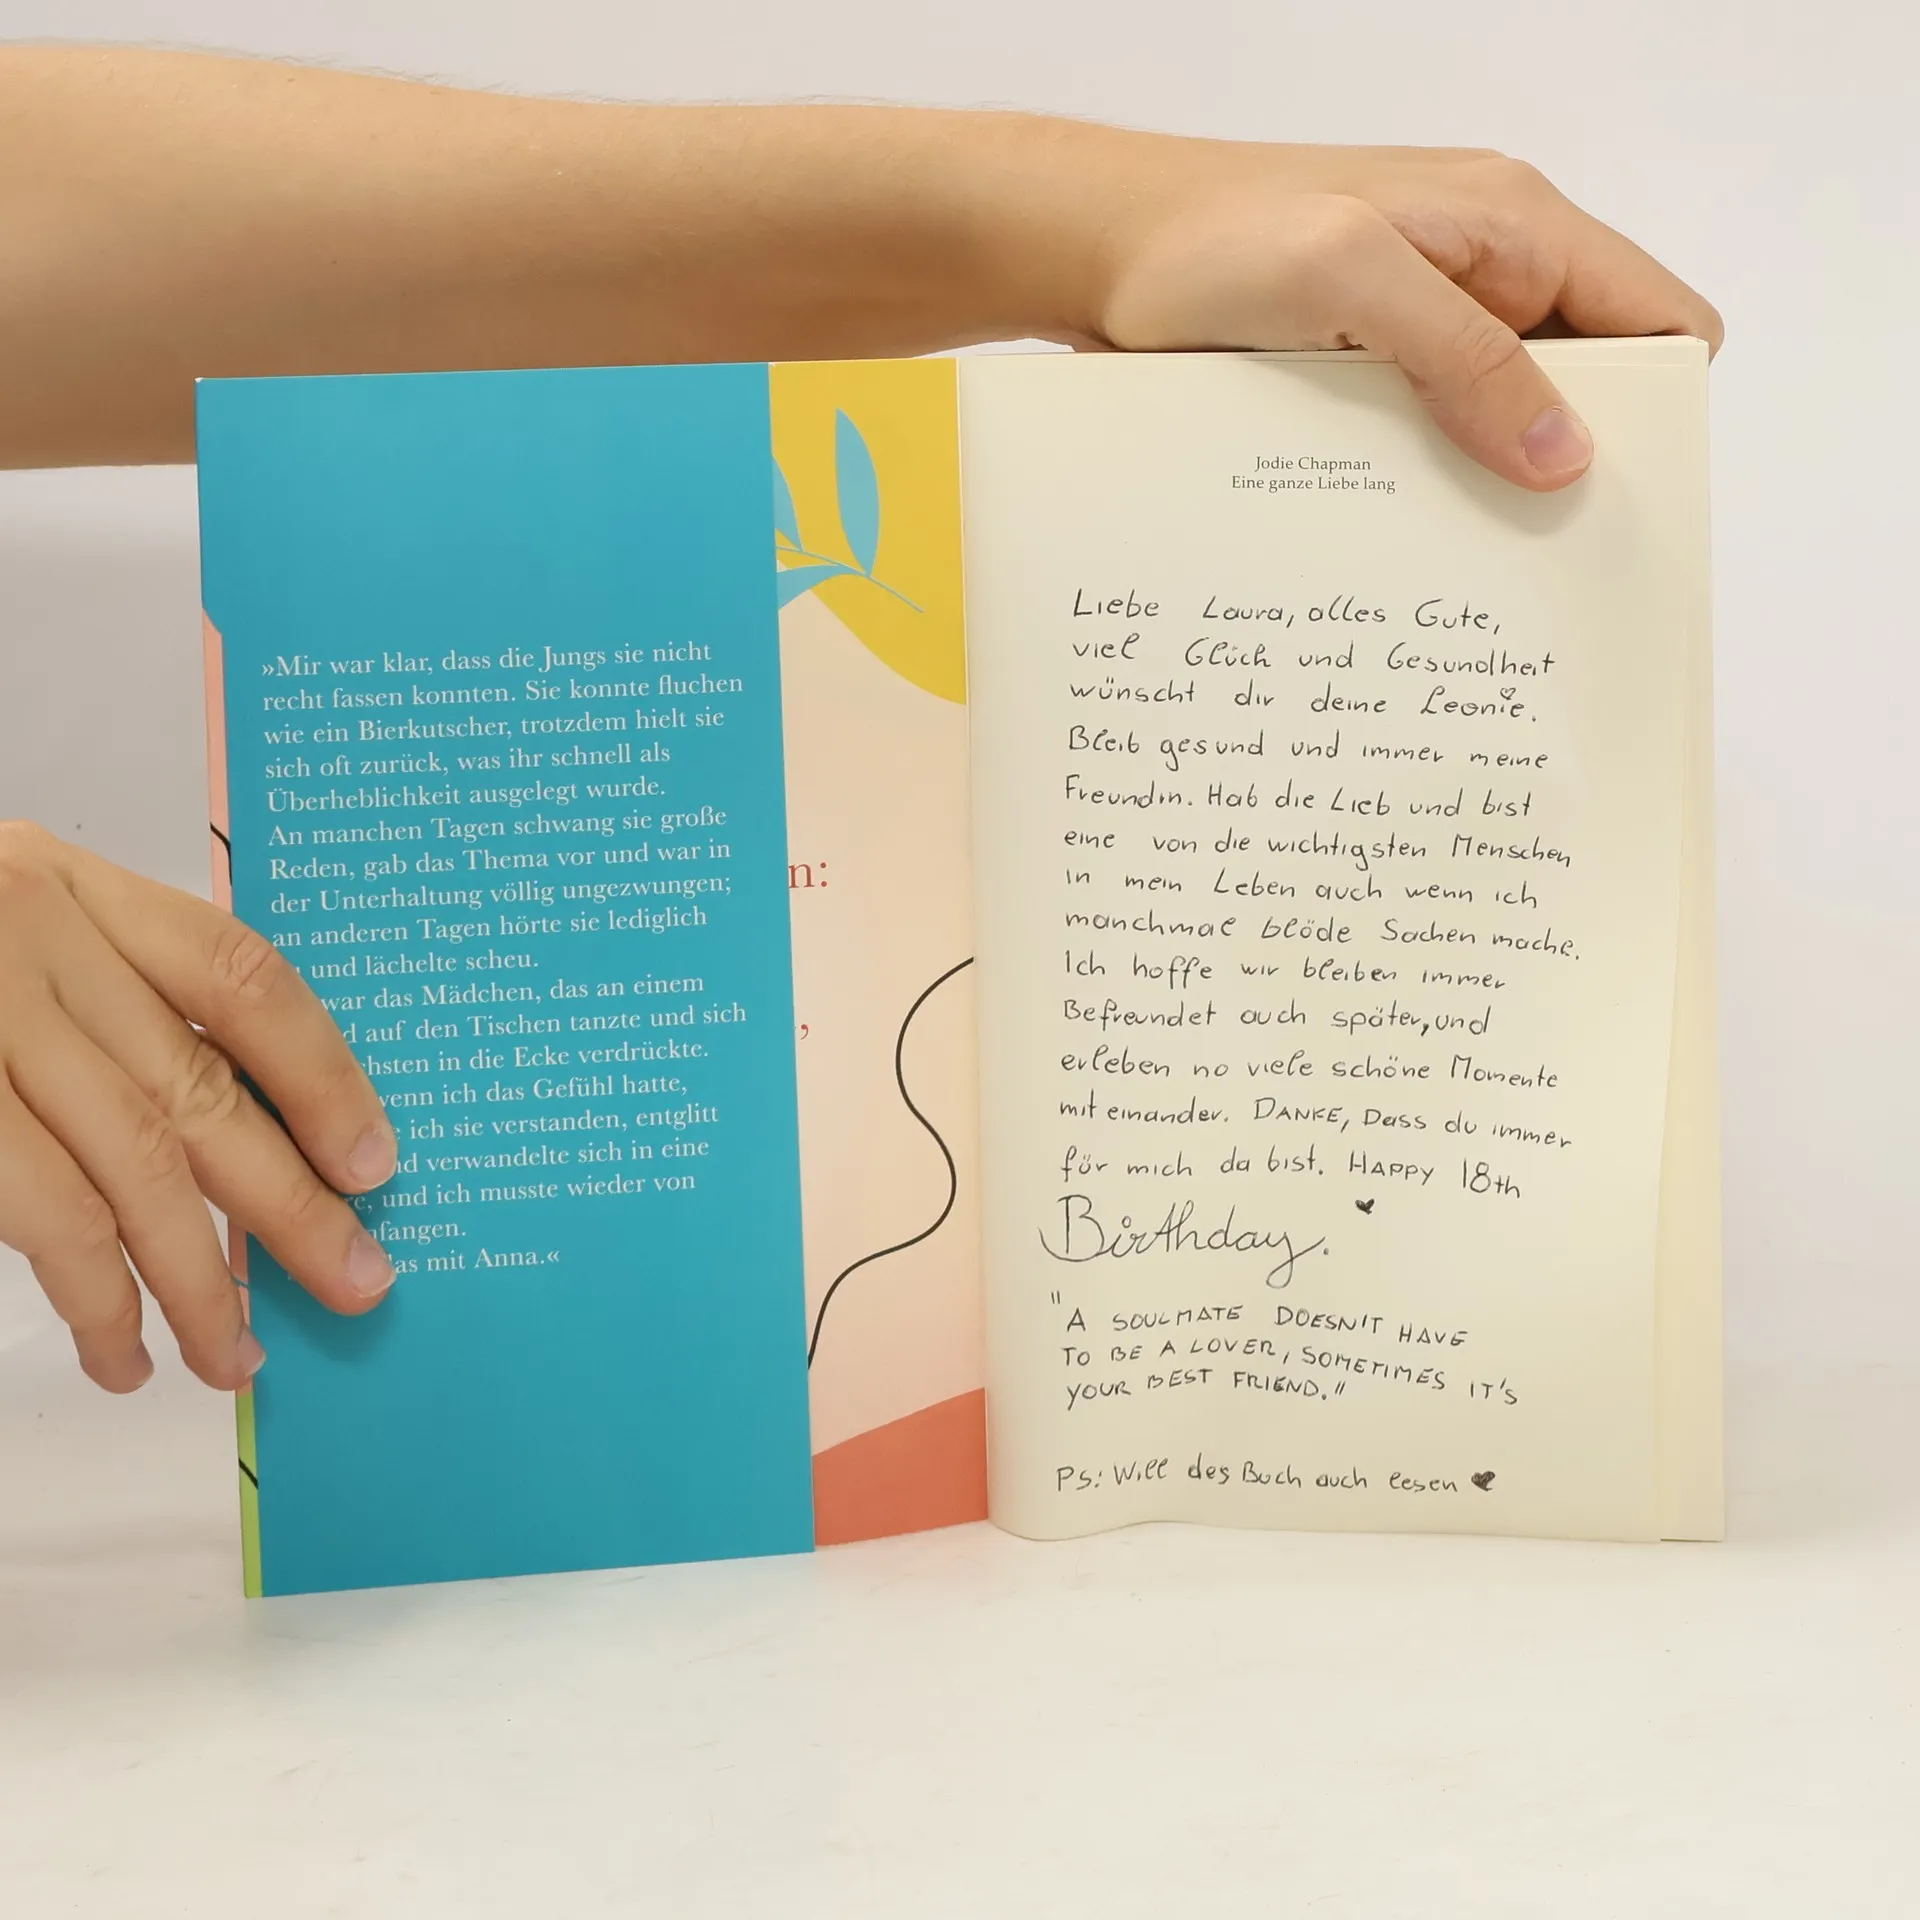 »Mir war klar, dass die Jungs sie nicht
recht fassen konnten. Sie konnte fluchen
wie ein Bierkutscher, trotzdem hielt sie
sich oft zurück, was ihr schnell als
Überheblichkeit ausgelegt wurde.
An manchen Tagen schwang sie große
Reden, gab das Thema vor und war in
der Unterhaltung völlig ungezwungen;
an anderen Tagen hörte sie lediglich
und lächelte scheu.
war das Mädchen, das an einem
auf den Tischen tanzte und sich
in die Ecke verdrückte.
wenn ich das Gefühl hatte,
ich sie verstanden, entglitt
verwandelte sich in eine
und ich musste wieder von
mit Anna.«
n:
,
Jodie Chapman
Eine ganze Liebe lang
Liebe Laura, alles Gute,
viel Glück und Gesundheit
wünscht dir deine Leonie.
Bleib gesund und immer meine
Freundin. Hab die Lieb und bist
eine von die wichtigsten Menschen
in mein Leben auch wenn ich
manchmal blöde Sachen mache.
Ich hoffe wir bleiben immer
Befreundet auch später, und
erleben no viele schöne Momente
miteinander. DANKE, Dass du immer
für mich da bist. HAPPY 18th
Birthday.
"A SOULMATE DOESN'T HAVE
TO BE A LOVER, SOMETIMES IT'S
YOUR BEST FRIEND."
Ps: Will des Buch auch lesen ♥